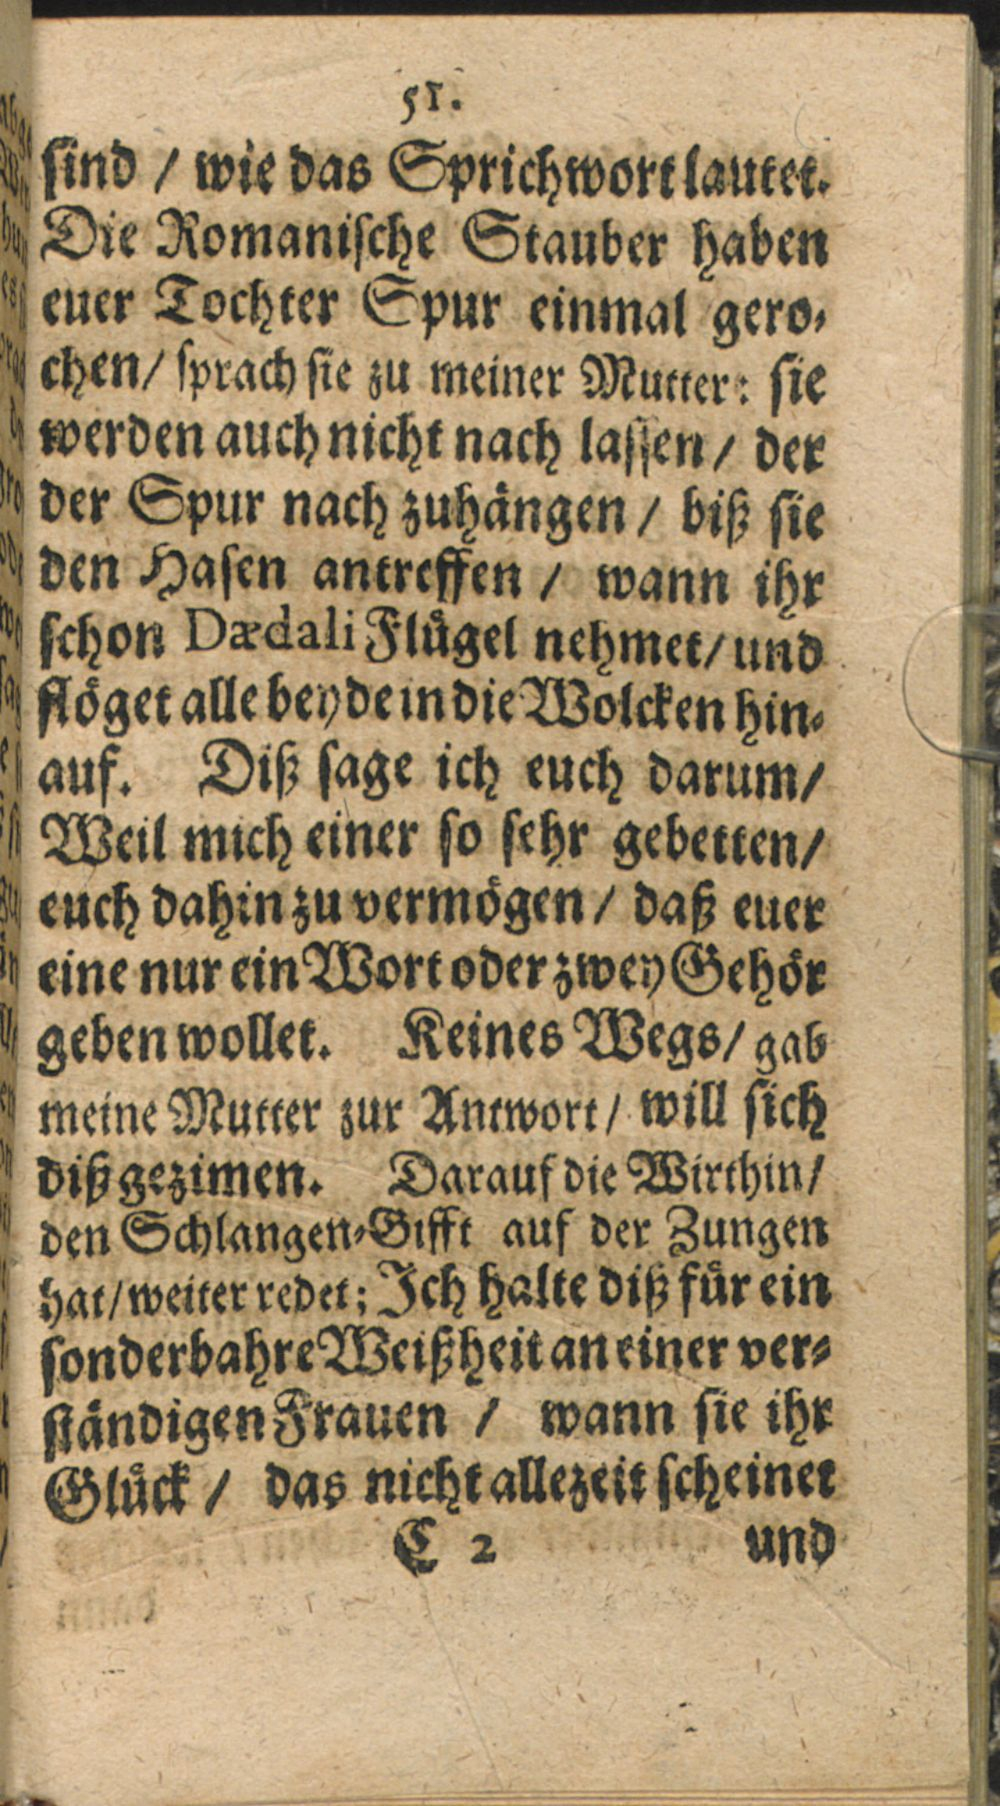 51.
sind / wie das Sprichwort lautet.
Die Romanische Stauber haben
euer Tochter Spur einmal gero-
chen/ sprach sie zu meiner Mutter: sie
werden auch nicht nach lassen / der
der Spur nach zuhängen / biß sie
den Hasen antreffen / wann ihr
schon Dædali Flügel nehmet/ und
flöget alle beyde in die Wolcken hin-
auf. Diß sage ich euch darum/
Weil mich einer so sehr gebetten/
euch dahin zu vermögen / daß euer
eine nur ein Wort oder zwey Gehör
geben wollet. Keines Wegs/ gab
meine Mutter zur Antwort/ will sich
diß gezimen. Darauf die Wirthin/
den Schlangen-Gifft auf der Zungen
hat/ weiter redet; Ich halte diß für ein
sonderbahre Weißheit an einer ver-
ständigen Frauen / wann sie ihr
Glück / das nicht allezeit scheinet
C 2 und